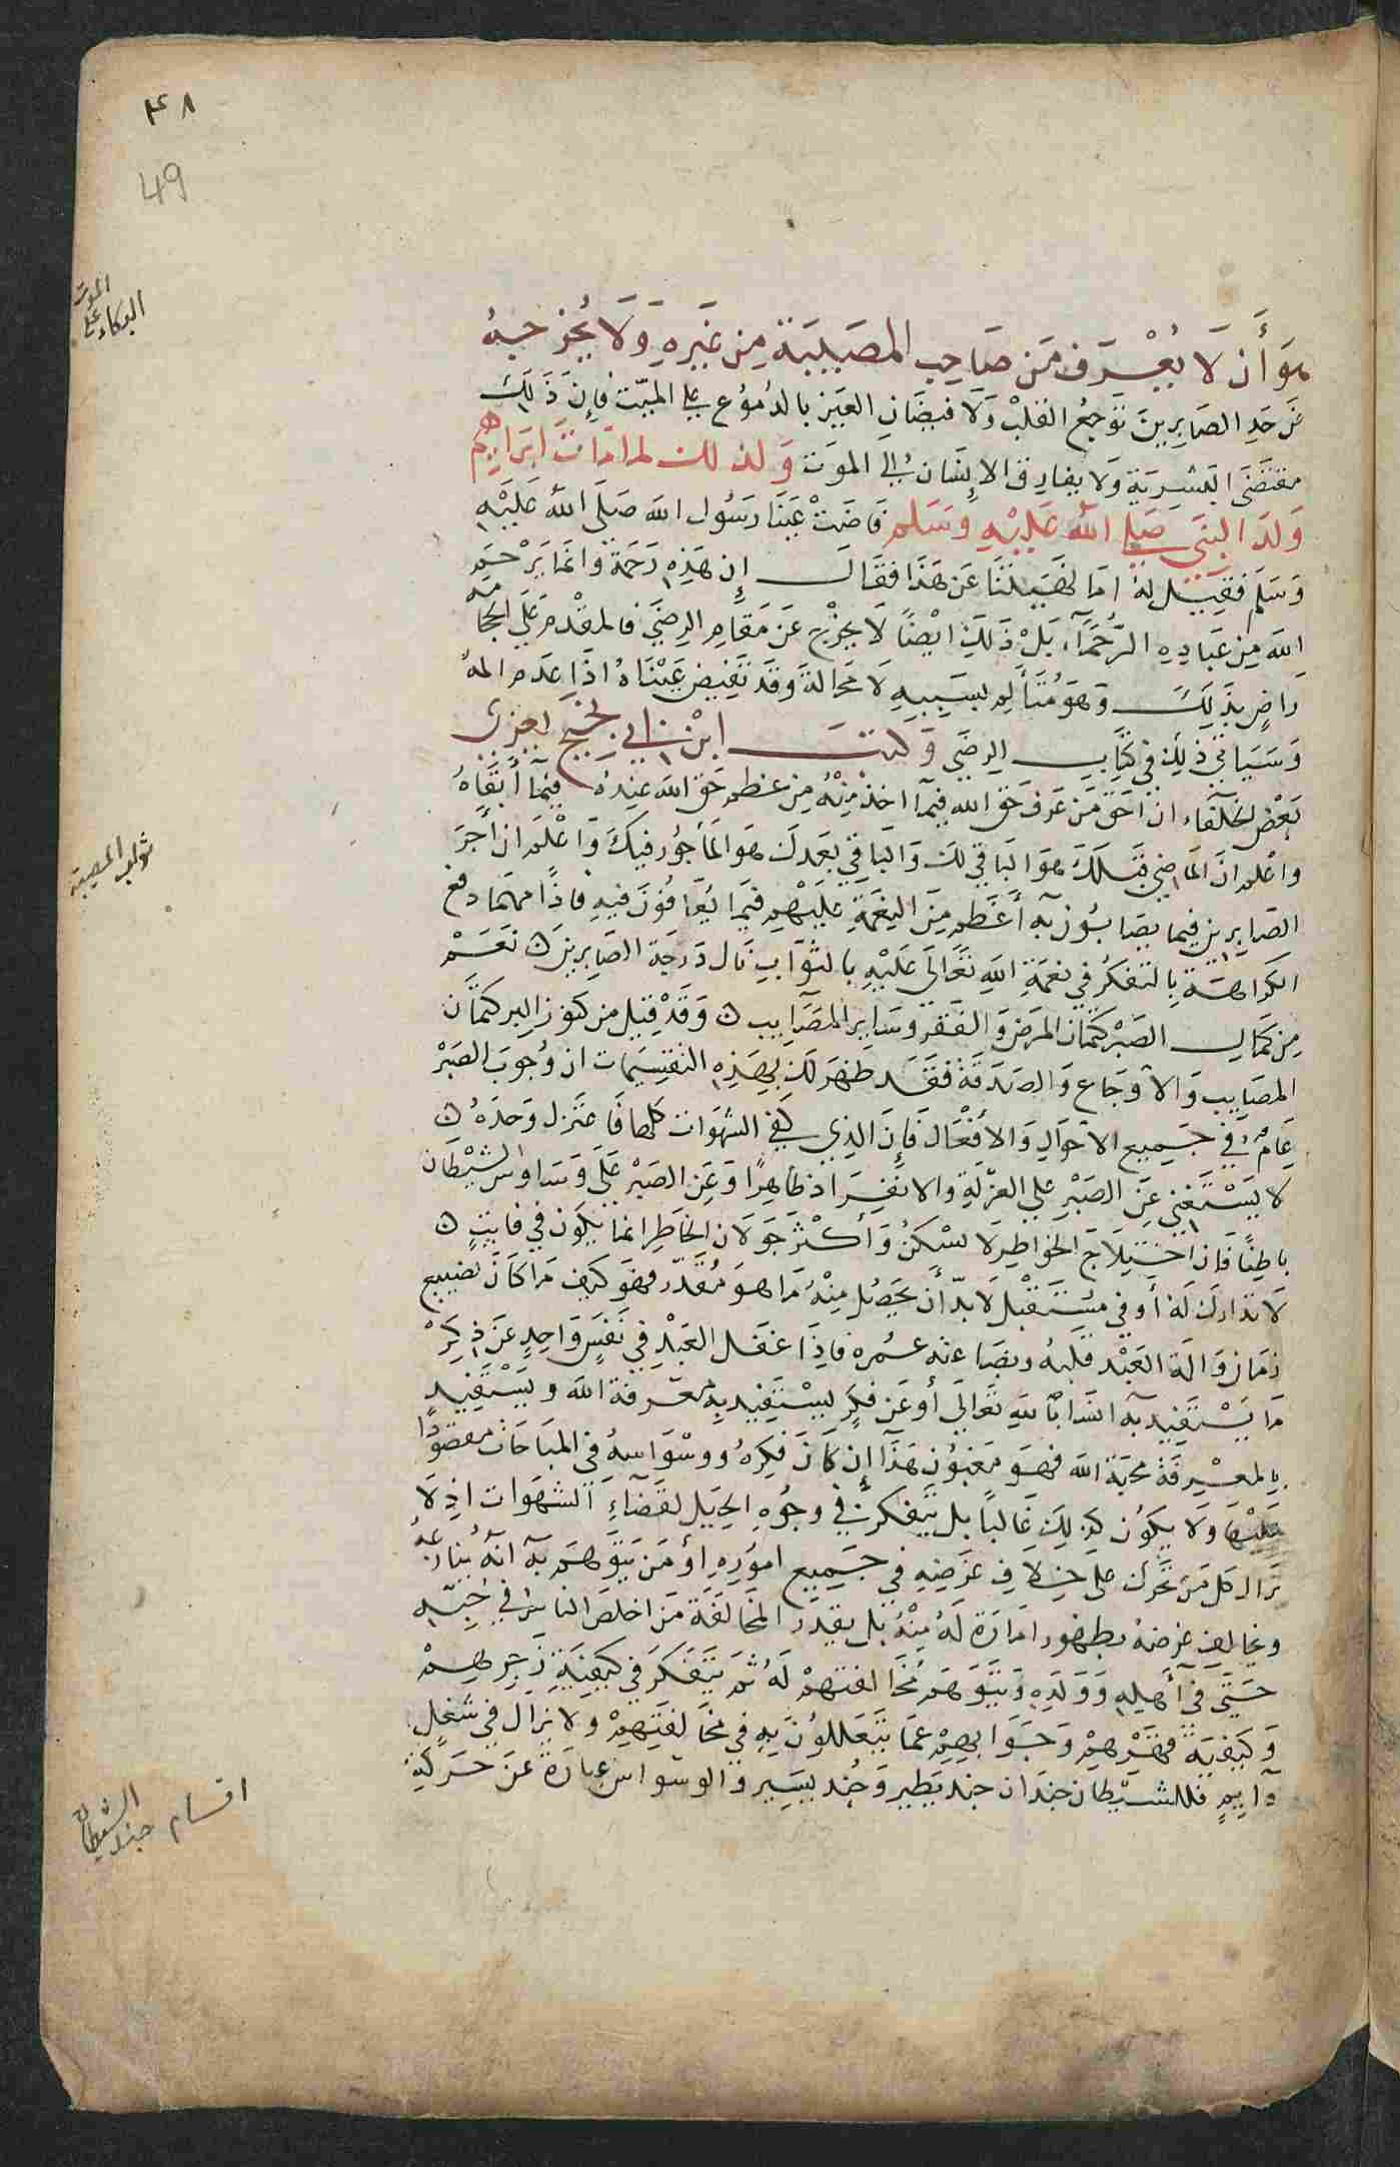 ٤٨
49
هو أن لا يعرف من صاحب المصيبة من غيره ولا يخرجه
عن حد الصابرين توجع القلب ولا فيضان العين بالدموع على الميت فإن ذلك
مقتضى البشرية ولا يفارق الإنسان إلى الموت ولذلك لما مات ابراهيم
ولد النبي صلى الله عليه وسلم فاضت عينا رسول الله صلى الله عليه
وسلم فقيل له اما نهيتنا عن هذا فقال إن هذه رحمة وانما يرحم
الله من عباده الرحماء بل ذلك ايضاً لا يخرج عن مقام الرضى فالمقدم على الحجامة
راضٍ بذلك وهو متألم بسببه لا محالة وقد تفيض عيناه اذا عظم المه
وسياتي ذلك في كتاب الرضى وكتب ابن ابي نجيح يعزي
بعض الخلفاء ان احق من عرف حق الله فيما اخذ منه من عظم حق الله عنده فيما أبقاه
واعلم ان الماضي قبلك هو الباقي لك والباقي بعدك هو المأجور فيك واعلم ان أجر
الصابرين فيما يصابون به أعظم من النعمة عليهم فيما يعافون فيه فاذاً مهما دفع
الكراهة بالتفكر في نعمة الله تعالى عليه بالثواب نال درجة الصابرين ن نعم
من كمال الصبر كتمان المرض والفقر وساير المصايب ن وقد قيل من كنوز البر كتمان
المصايب والأوجاع والصدقة فقد ظهر لك بهذه التقسيمات ان وجوب الصبر
عام في جميع الأحوال والأفعال فإن الذي كفي الشهوات كلها فاعتزل وحده ن
لا يستغني عن الصبر على العزلة والانفراد ظاهرًا وعن الصبر على وساوس الشيطان
باطنًا فإن اختلاج الخواطر لا يسكن وأكثر جولان الخاطر انما يكون في فايتٍ ن
لا تدارك له أو في مستقبل لا بدّ أن يحصل منه ما هو مقدّر فهو كيف ما كان تضييع
زمان والة العبد قلبه وبضاعته عمره فاذا غفل العبد في نفسٍ واحدٍ عن ذكر
ما يستفيد به انسا بالله تعالى أو عن فكر ليستفيد به معرفة الله ويستفيد
بالمعرفة محبة الله فهو مغبون هذا إن كان فكره ووسواسه في المباحات مقصودًا
عليها ولا يكون كذلك غالباً بل يتفكر في وجوه الحيل لقضاء الشهوات اذ لا
يزال كل من تحرك على خلاف غرضه في جميع اموره أو من يتوهم به انه ينازعه
ويخالف غرضه بظهور امارة له منه بل يقدر المخالفة من اخلص الناس في حبه
حتى في أهله وولده ويتوهم مخالفتهم له ثم يتفكر في كيفية زجرهم
وكيفية قهرهم وجوابهم عما يتعللون به في مخالفتهم ولا يزال في شغل
دايمٍ فللشيطان جندان جند يطير وجند يسير والوسواس عبارة عن حركة
البكاء على الموت
ثواب المصيبة
اقسام جند الشيطان